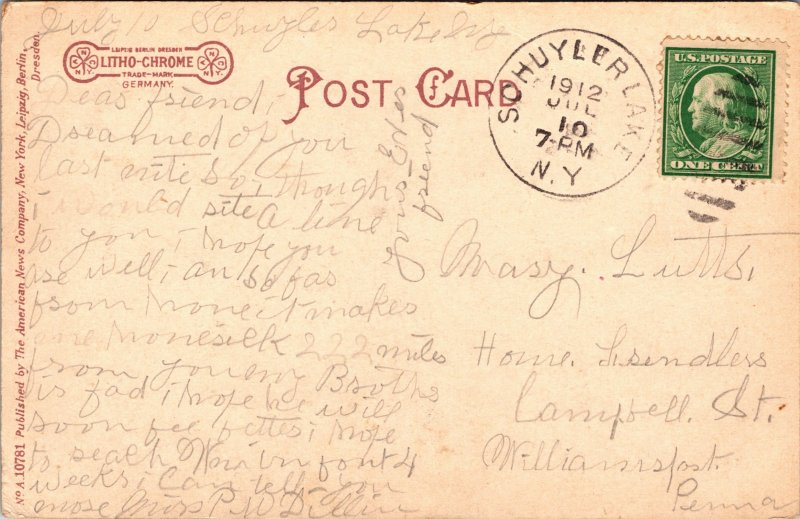 July 10 Schuyler Lake Ny
LEIPZIG BERLIN DRESDEN
LITHO-CHROME
TRADE-MARK
GERMANY.
POST CARD
SCHUYLER LAKE
1912
JUL
10
7-PM
N.Y.
U.S. POSTAGE
ONE CENT
No A.10781 Published by The American News Company, New York, Leipzig, Berlin,
Dresden.
Dear friend,
Dreamed of you
last nite so, thought
i would rite A line
to you, i hope you
are well, i am so far
from home it makes
me homesick 222 miles
from you my Brother
is bad i hope he will
soon be better, i hope
to reach in 4
weeks, i can tell you
more Miss P. W. Dillin
Yours Ever
friend
Mary. Lutts,
Home.
Campbell. St.
Williamsport.
Penna